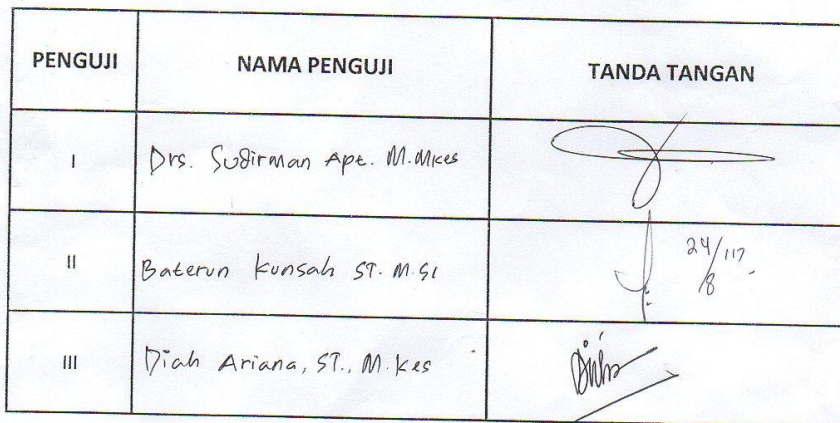 PENGUJI NAMA PENGUJI TANDA TANGAN
I Drs. Sudirman Apt. M.Mkes
II Baterun Kunsah ST. M.Si
24/8
III Diah Ariana, ST., M.Kes